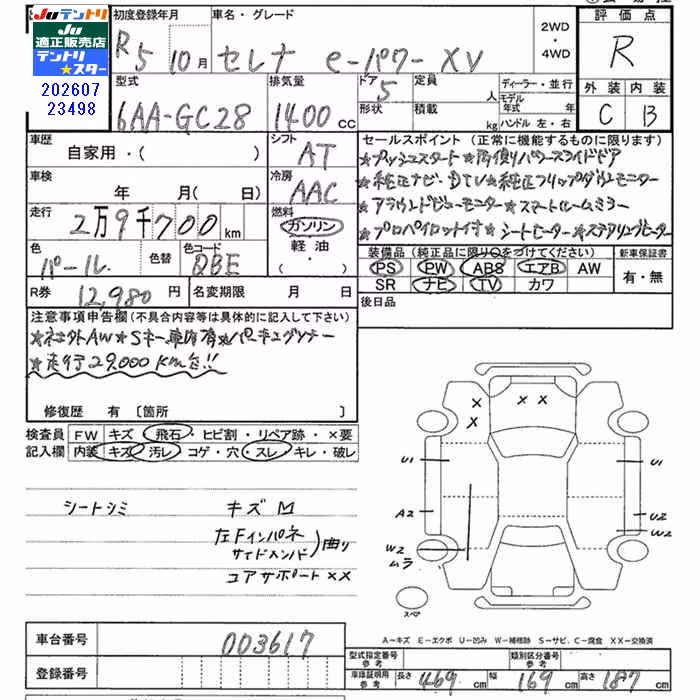 JUテントリ JUテントリ
JU
適正販売店
テントリ
★スター
202607
23498
初度登録年月
R5 10月
車名・グレード
セレナ e-パワー XV
2WD
・
4WD
評価点
R
外装 内装
C B
型式
6AA-GC28
排気量
1400 cc
ドア
5
形状
定員
人
積載
kg
ディーラー・並行
モデル
年式 年
ハンドル 左・右
車歴
自家用・( )
シフト
AT
車検
年 月(日)
冷房
AAC
走行
2万9千700 km
燃料
ガソリン
軽油
・( )
色
パール
色替
色コード
QBE
R券
12,980円
名変期限 月 日
セールスポイント(正常に機能するものに限ります)
★プッシュスタート★両側パワースライドドア
★純正ナビ・DTV★純正フリップダウンモニター
★アラウンドビューモニター★スマートルームミラー
★プロパイロット付★シートヒーター★ステアリングヒーター
装備品(純正品に限り○をつけてください)
PS PW ABS エアB AW
SR ナビ TV カワ
新車保証書
有・無
後日品
注意事項申告欄(不具合内容等は具体的に記入して下さい)
★社外AW★Sキー
★走行29,000km台!!
修復歴 有 〔箇所 〕
検査員
記入欄
FW キズ・飛石・ヒビ割・リペア跡・×要
内装 キズ・汚レ・コゲ・穴・スレ・キレ・破レ
シートシミ
キズM
左Fインパネ
サイドメンバ
曲り
コアサポート××
U1
A2
W2
ムラ
U1
U2
W2
スペア
A−キズ E−エクボ U−凹み W−補修跡 S−サビ、C−腐食 XX−交換済
車台番号
003617
登録番号
型式指定番号
参考
類別区分番号
参考
車庫証明用
参考
長さ 469 cm
幅 169 cm
高さ 187 cm